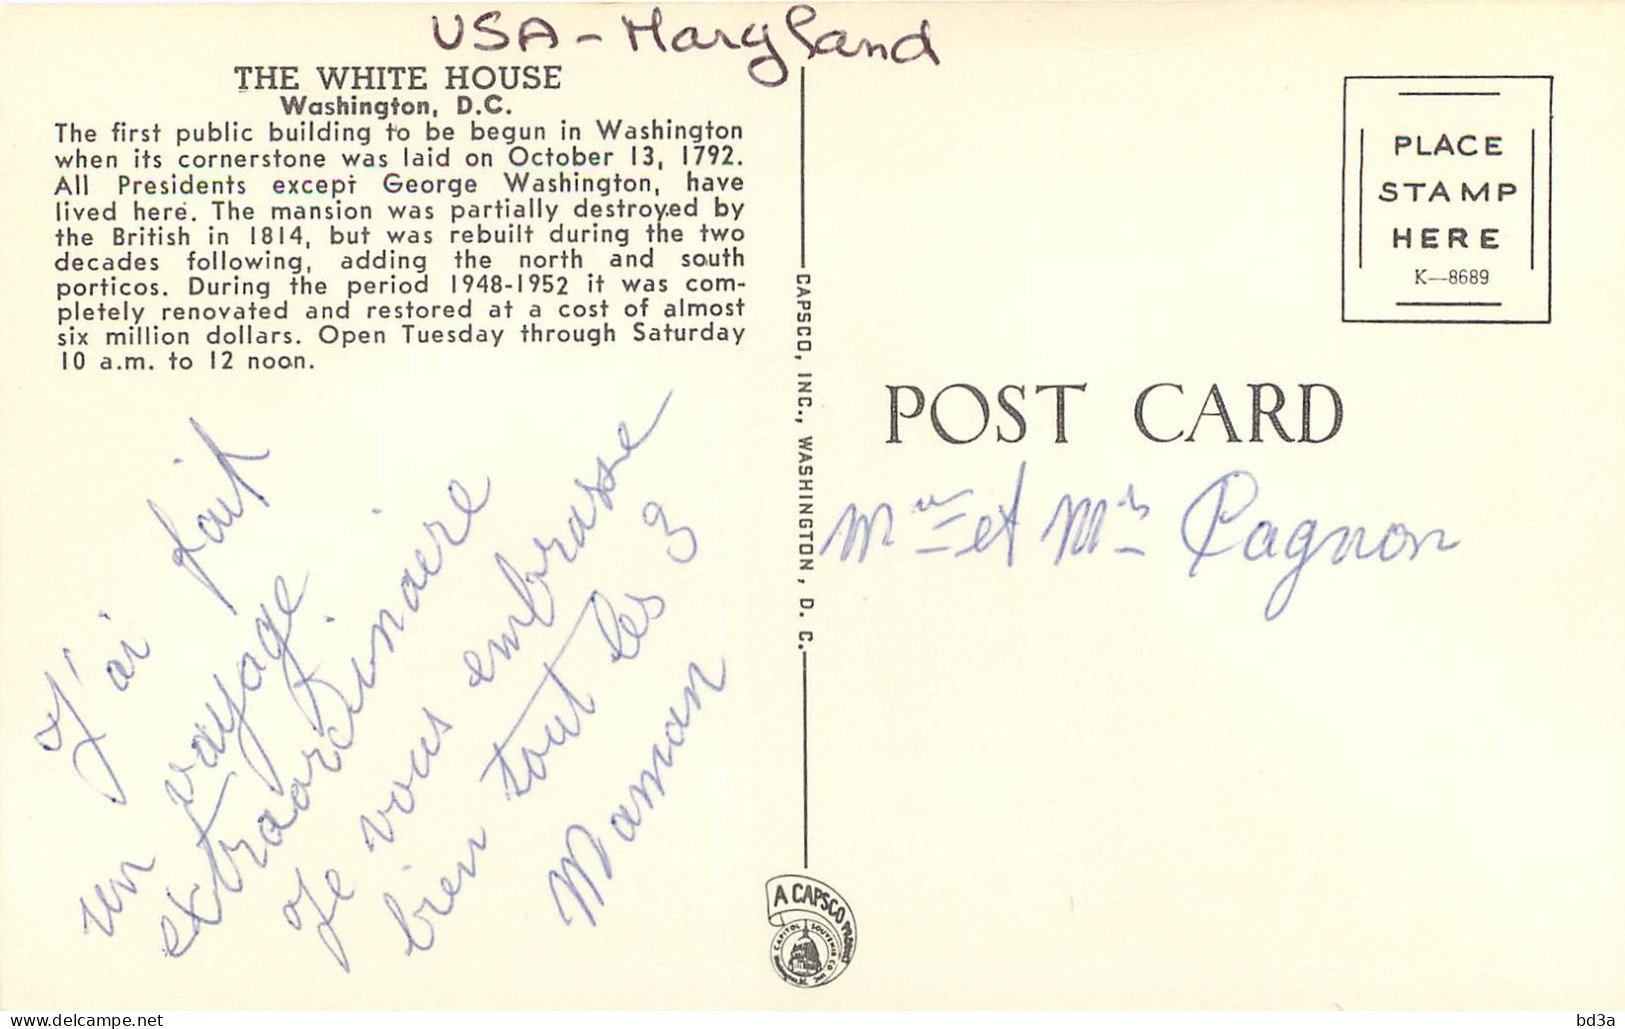 USA - Maryland
THE WHITE HOUSE
Washington, D.C.
The first public building to be begun in Washington
when its cornerstone was laid on October 13, 1792.
All Presidents except George Washington, have
lived here. The mansion was partially destroyed by
the British in 1814, but was rebuilt during the two
decades following, adding the north and south
porticos. During the period 1948-1952 it was com-
pletely renovated and restored at a cost of almost
six million dollars. Open Tuesday through Saturday
10 a.m. to 12 noon.
J'ai fait
un voyage
extraordinaire
Je vous embrasse
bien tout les 3
Maman
CAPSCO, INC., WASHINGTON, D. C.
A CAPSCO PRODUCT
CAPITOL SOUVENIR CO. INC. Washington
PLACE
STAMP
HERE
K—8689
POST CARD
et Pagnon
delcampe.net
bd3a